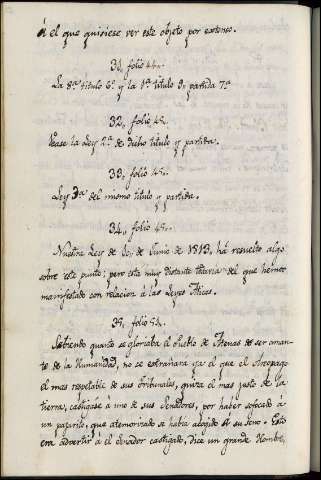 á el que quisiese ver este objeto por extenso.
31,, folio 44..
La 8ª titulo 6º y la 1ª titulo 9, partida 7ª
32,, folio 45.
Vease la Ley 2ª de dicho titulo y partida.
33,, folio 45..
Ley 3ª del mismo titulo y partida.
34,, folio 45..
Nuestra Ley de 10,, de Junio de 1813, há resuelto algo
sobre este punto; pero esta muy distante todavia del que hemos
manifestado con relacion á las Leyes Aticas.
35,, folio 54..
Sabiendo quanto se gloriaba el Pueblo de Atenas de ser aman-
te de la Humanidad, no se extrañara ya el que el Areopago
el mas respetable de sus tribunales, quiza el mas justo de la
tierra, castigase á uno de sus Senadores, por haber sofocado á
un pajarito, que atemorizado se habia acogido á su seno. Esto
era advertir á el Senador castigado, dice un grande Hombre,